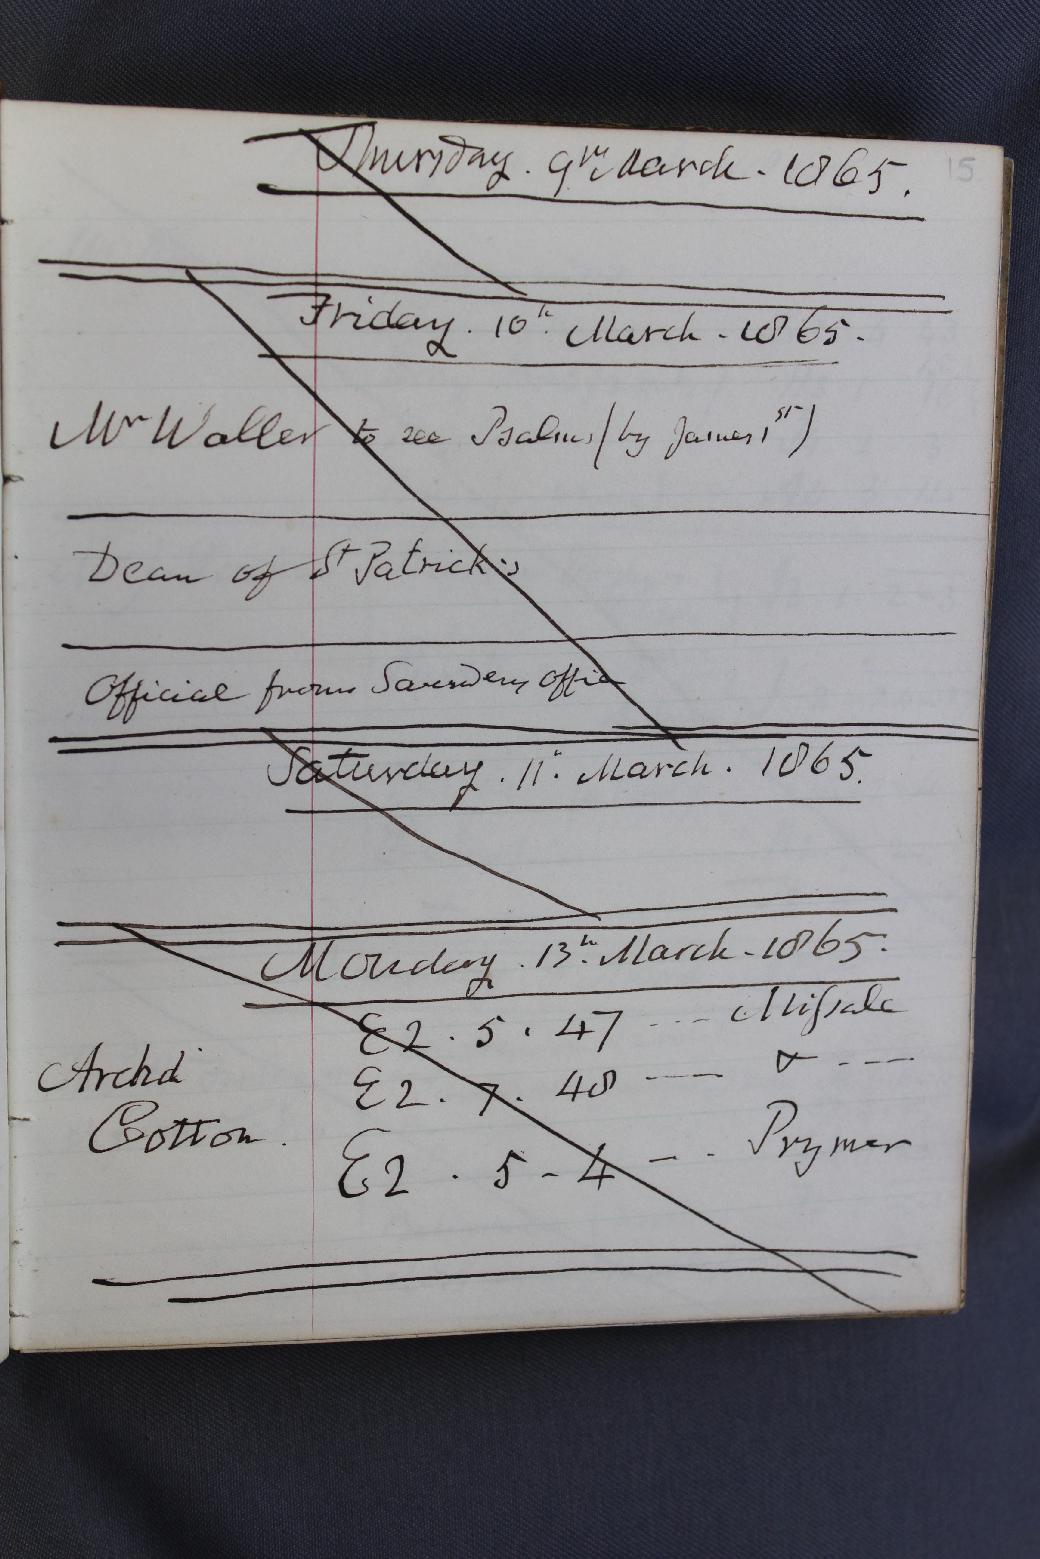 15
Thursday. 9th March. 1865.
Friday. 10th March. 1865.
Mr Waller to see Psalms (by James 1st)
Dean of St Patrick's
Official from Saunders office
Saturday. 11th March. 1865.
Monday. 13th March. 1865.
E2. 5. 47 --- Missale
Archd E2. 7. 48 —— ---
Cotton.
E2. 5-4 -- Prymer